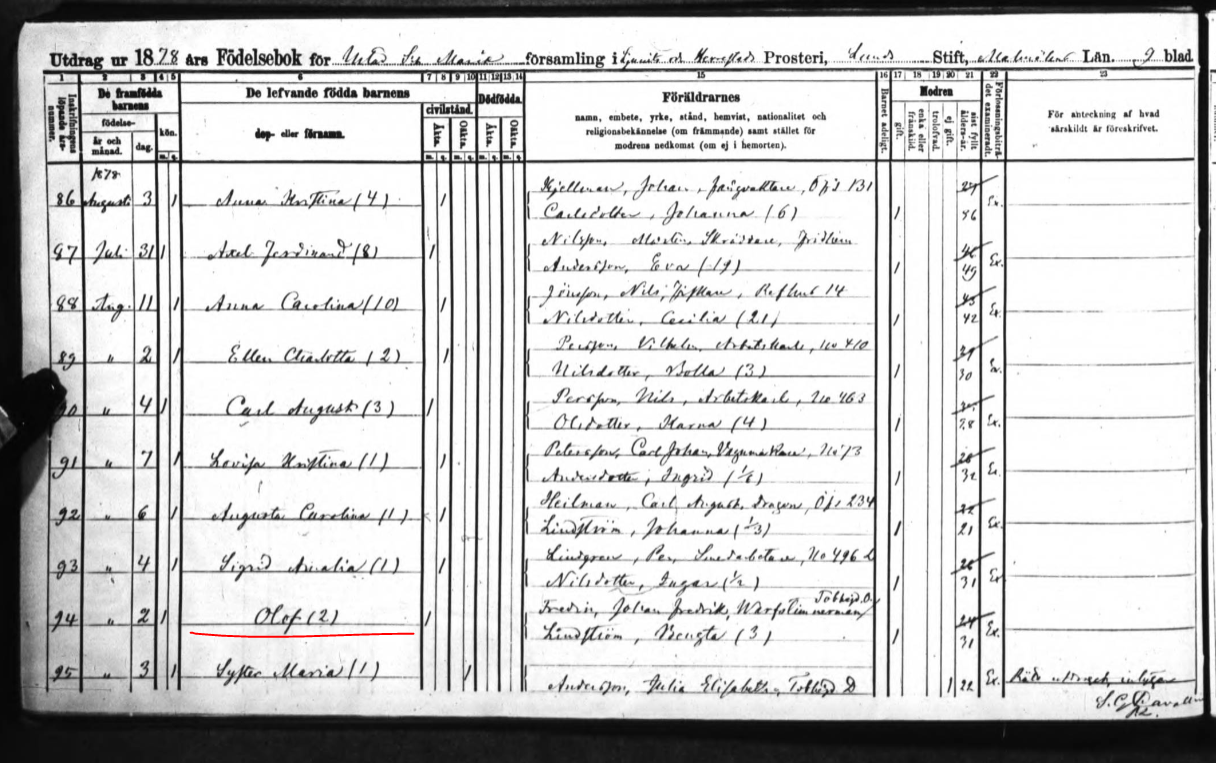 Utdrag ur 1878 års Födelsebok för Ystad S:ta Maria församling i Ljunits och Herrestads Prosteri, Lunds Stift, Malmöhus Län. 9 blad
1 2 3 4 5 6 7 8 9 10 11 12 13 14 15 16 17 18 19 20 21 22 23
Inskrifningens löpande års-nummer.
De framfödda barnens
födelse-
år och månad.
dag.
kön.
m. q.
De lefvande födda barnens
dop- eller förnamn.
civilstånd.
Äkta.
Oäkta.
m. q. m. q.
Dödfödda.
Äkta.
Oäkta.
m. q. m. q.
Föräldrarnes
namn, embete, yrke, stånd, hemvist, nationalitet och
religionsbekännelse (om främmande) samt stället för
modrens nedkomst (om ej i hemorten).
Barnet adeligt.
Modren
gift.
enka eller frånskild.
trolofvad.
ej gift.
sist fyllt ålders-år.
Förlossningsbiträdet examineradt.
För anteckning af hvad
särskildt är föreskrifvet.
1878
86 Augusti 3 / Anna Kristina (4) / Kjellman, Johan, 131
Carlsdotter, Johanna (6) / 36 Ex.
87 Juli 31 / Axel Ferdinand (8) / Nilsson, Mårten, Skräddare, Fridhem
Andersson, Eva (19) / 49 Ex.
88 Aug. 11 / Anna Carolina (10) / Jönsson, Nils, 14
Nilsdotter, Cecilia (21) / 42 Ex.
89 " 2 / Ellen Charlotta (2) / Persson, Vilhelm, Arbetskarl, No 410
Nilsdotter, Bolla (3) / 30 Ex.
90 " 4 / Carl August (3) / Persson, Nils, Arbetskarl, No 463
Olsdotter, Karna (4) / 28 Ex.
91 " 7 / Lovisa Kristina (1) / Petersson, Carl Johan, Vagnmakare, No 73
Andersdotter, Ingrid (1/6) / 32 Ex.
92 " 6 / Augusta Carolina (1) / Heilman, Carl August, Dragon, 234
Lindström, Johanna (1/3) / 21 Ex.
93 " 4 / Sigrid Amalia (1) / Lindgren, Per, Smedarbetare, No 496
Nilsdotter, Ingar (1/2) / 31 Ex.
94 " 2 / Olof (2) / Fredin, Johan Fredrik, Werfstimmerman,
Lindström, Bengta (3) / 31 Ex.
95 " 3 / Syster Maria (1) /
Andersson, Julia Elisabeth, / 22 Ex.